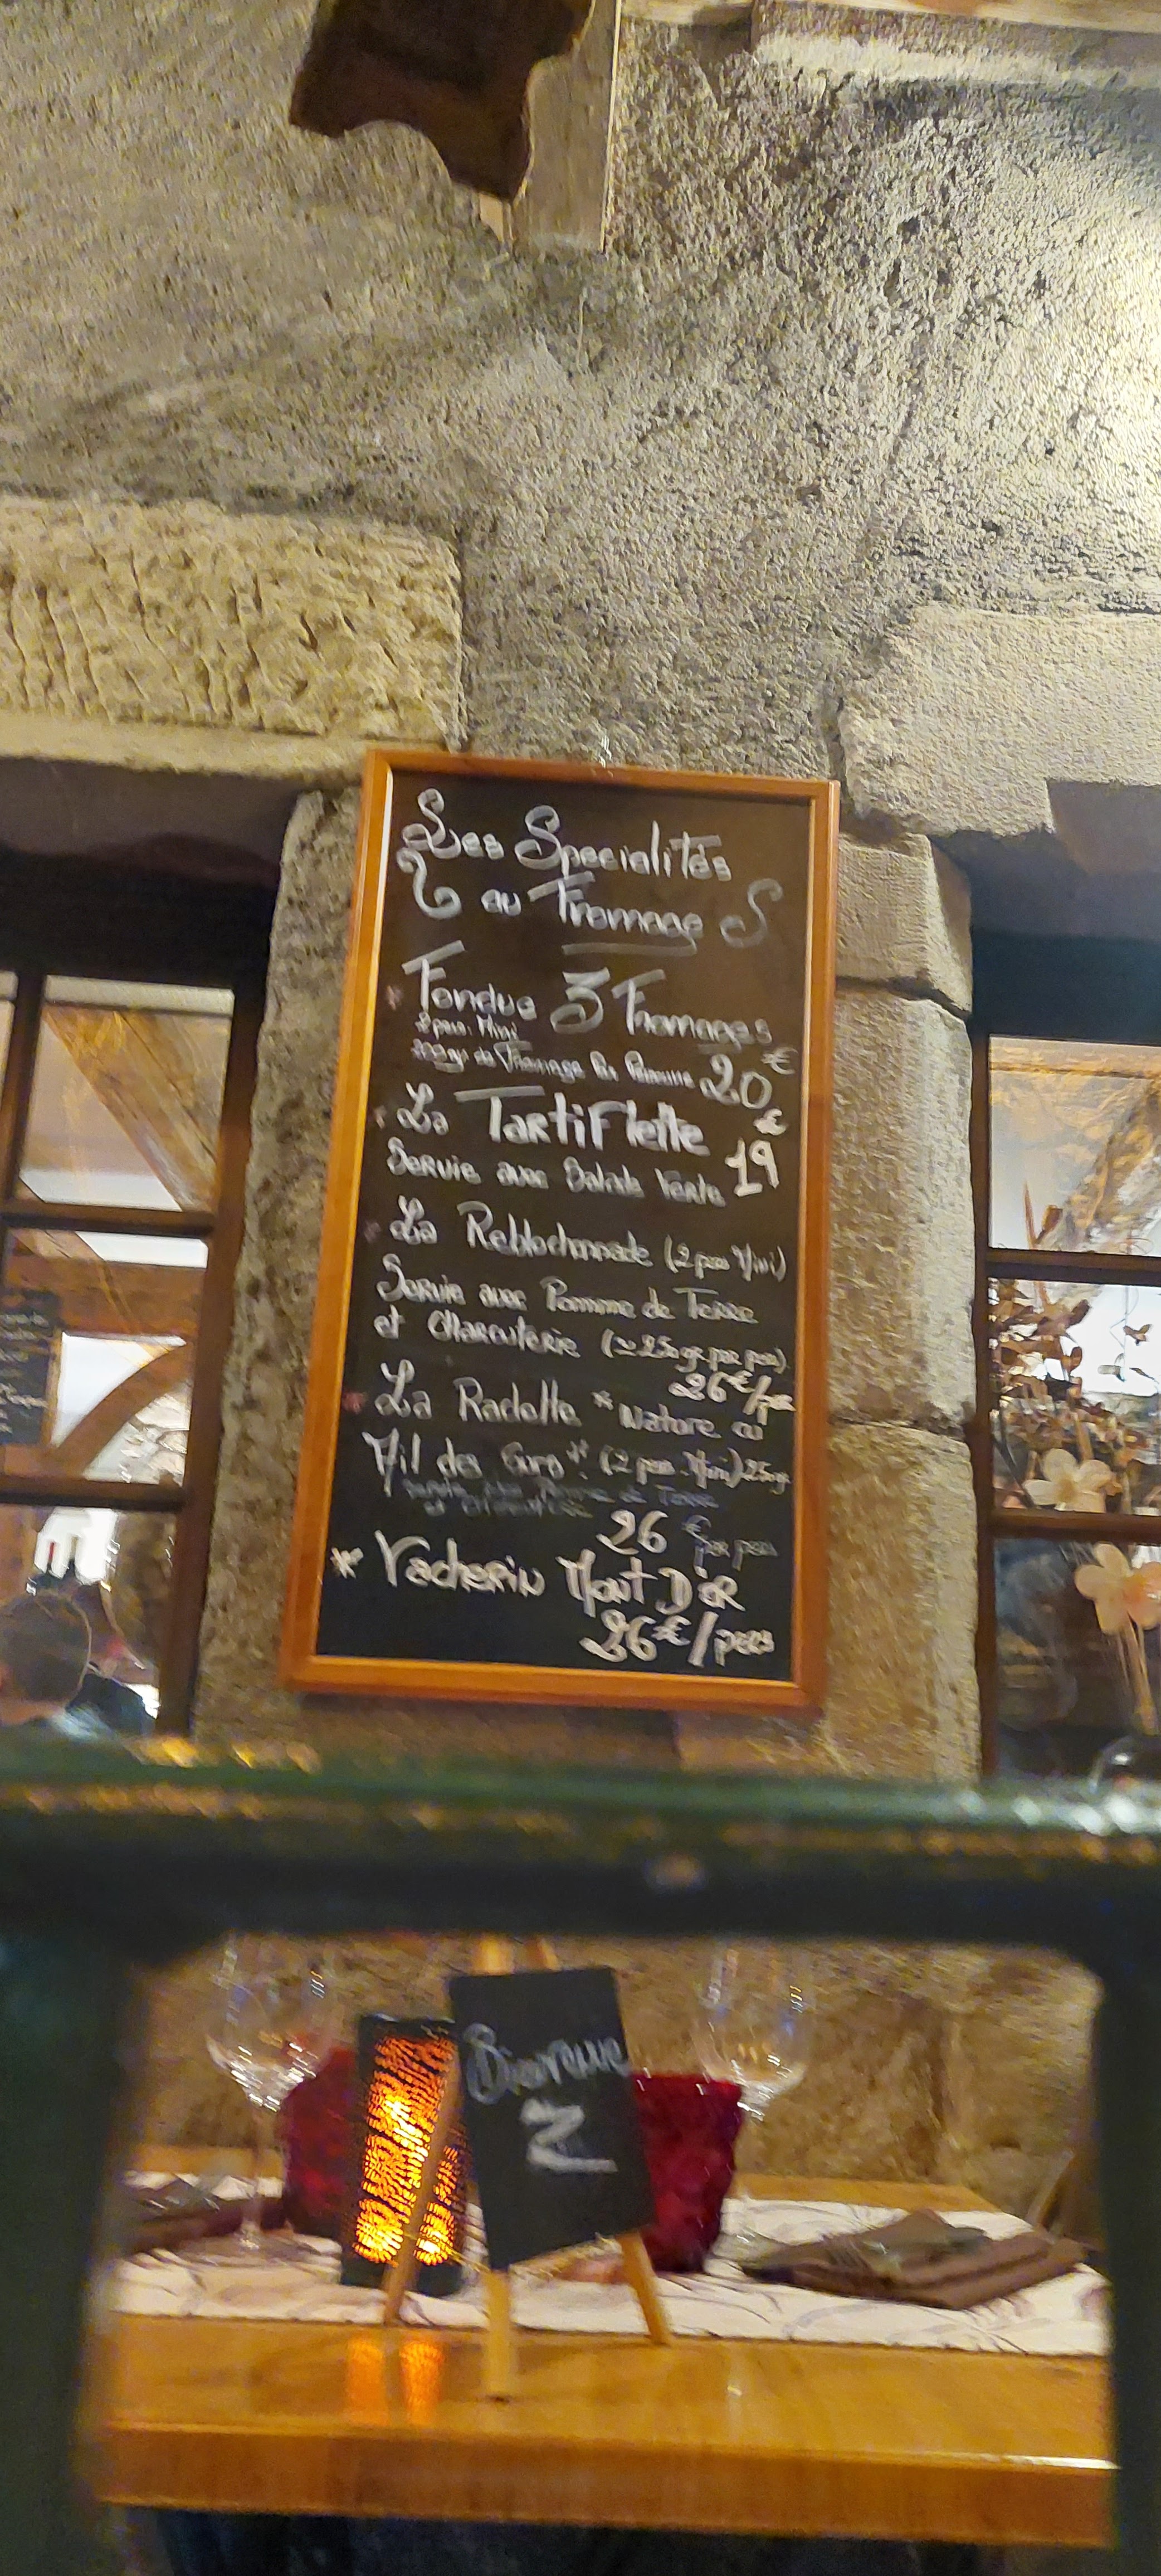 Les Spécialités
au Fromage
* Fondue 3 Fromages
2 pers. Mini
200 grs de Fromage Par Personne 20€
* La Tartiflette
Servie avec Salade Verte 19€
* La Reblochonade (2 pers Mini)
Servie avec Pomme de Terre
et Charcuterie (≃250gr par pers)
26€/pers
* La Raclette *Nature ou
Ail des Ours* (2 pers. Mini) 250gr
Servie avec Pomme de Terre
et Charcuterie
26 € par pers
* Vacherin Mont D'OR
26€/pers
Bienvenue
2